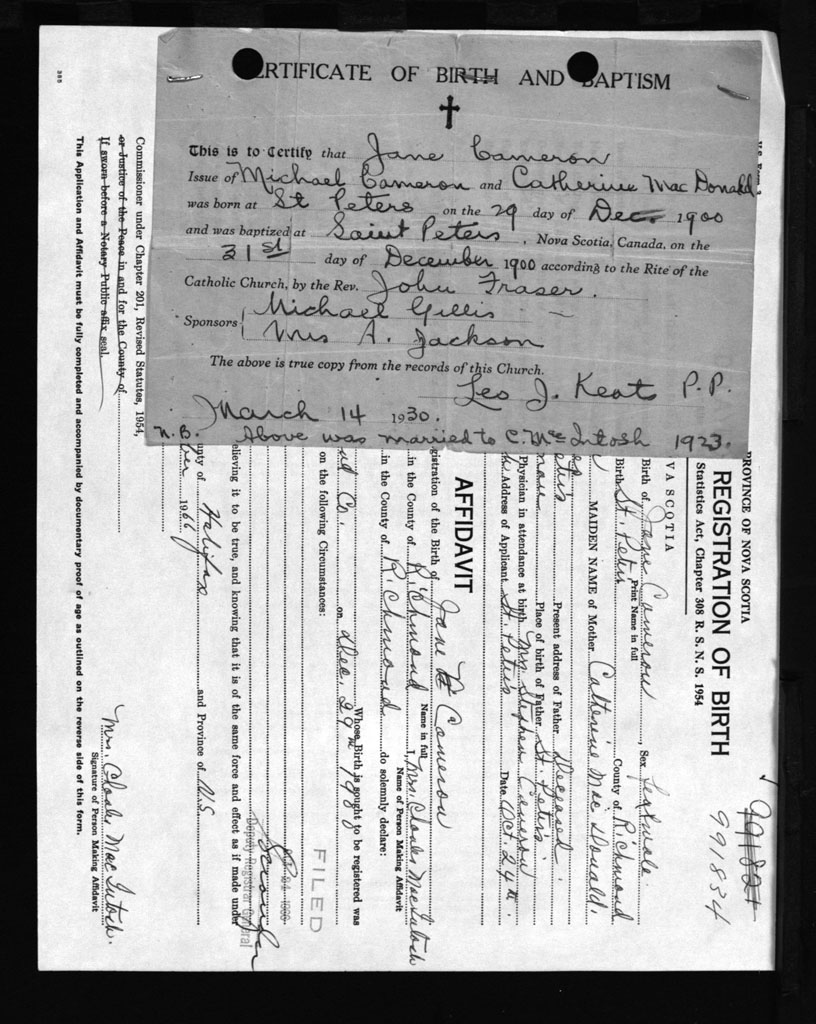 CERTIFICATE OF BIRTH AND BAPTISM
This is to Certify that Jane Cameron
Issue of Michael Cameron and Catherine MacDonald
was born at St Peters on the 29 day of Dec. 1900
and was baptized at Saint Peters, Nova Scotia, Canada, on the
31st day of December 1900 according to the Rite of the
Catholic Church, by the Rev. John Fraser.
Sponsors Michael Gillis
Mrs A. Jackson
The above is true copy from the records of this Church.
Leo J. Keats P.P.
March 14 1930.
N.B. Above was married to C. McIntosh 1923.
991821
991834
PROVINCE OF NOVA SCOTIA
REGISTRATION OF BIRTH
Statistics Act, Chapter 308 R. S. N. S. 1954
VA SCOTIA
Birth of Jane Cameron, Sex Female.
Print Name in full
Birth St. Peters County of Richmond
MAIDEN NAME of Mother Catherine MacDonald.
Present address of Father Deceased.
Place of birth of Father St. Peter's.
Physician in attendance at birth Mrs Stephen Cameron
Address of Applicant St. Peters Date Oct. 24th.
AFFIDAVIT
gistration of the Birth of Jane Cameron
Name in full
in the County of Richmond I, Mrs. Charles MacIntosh
Name of Person Making Affidavit
in the County of Richmond do solemnly declare:
Whose Birth is sought to be registered was
Co. on Dec. 29th
on the following Circumstances:
FILED
elieving it to be true, and knowing that it is of the same force and effect as if made under
Deputy Registrar General
unty of Halifax and Province of N.S.
1966
Mrs. Charles MacIntosh.
Signature of Person Making Affidavit
Commissioner under Chapter 201, Revised Statutes, 1954,
or Justice of the Peace in and for the County of
If sworn before a Notary Public affix seal.
This Application and Affidavit must be fully completed and accompanied by documentary proof of age as outlined on the reverse side of this form.